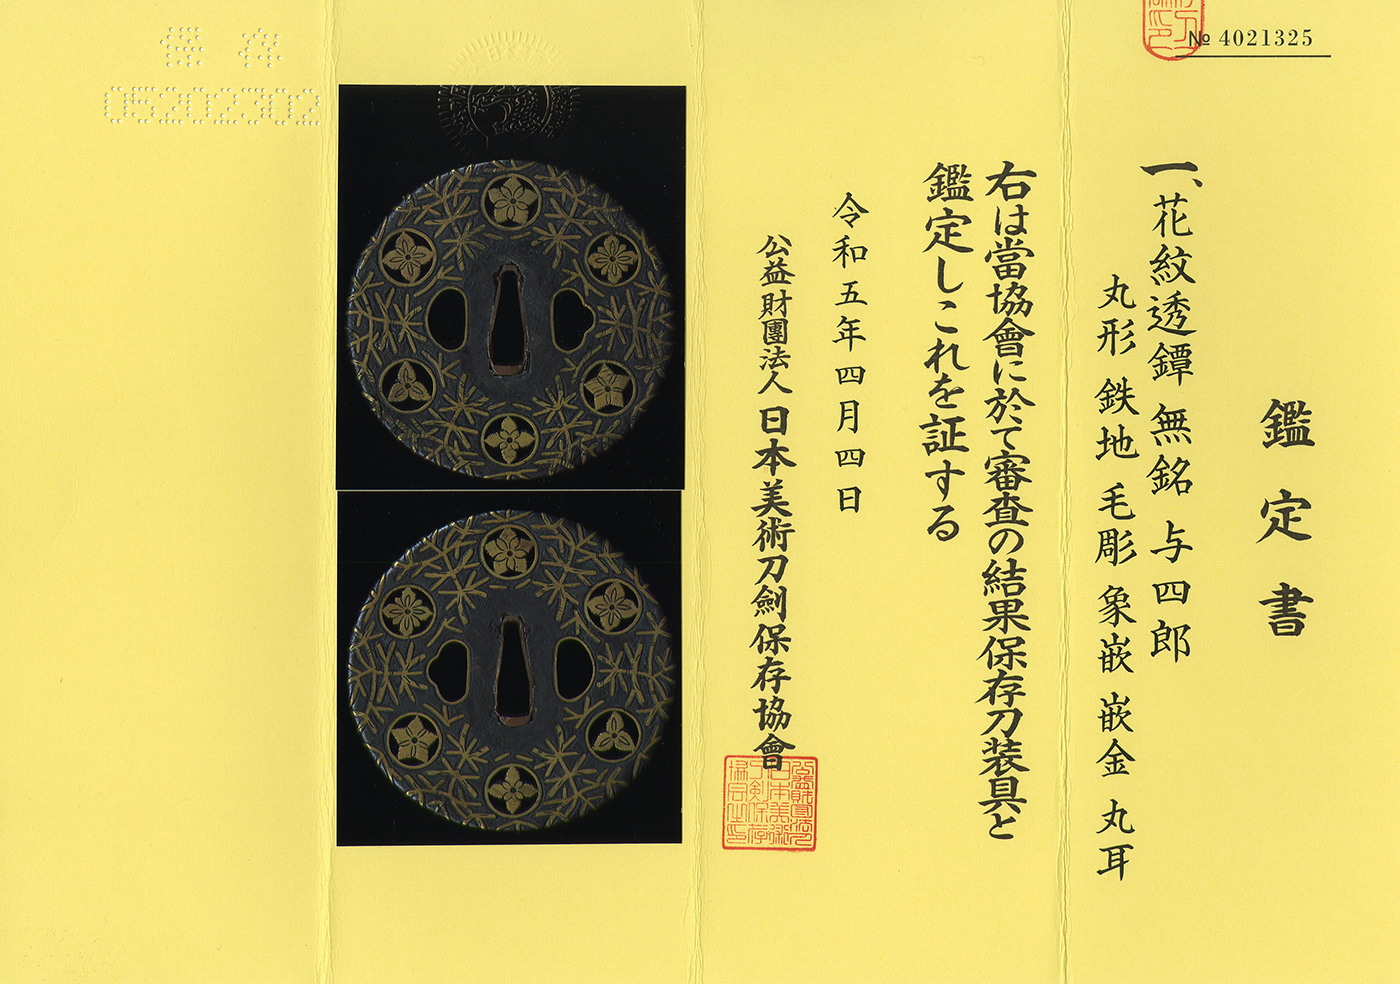 № 4021325
鑑定書
一、花紋透鐔 無銘 与四郎
丸形 鉄地 毛彫 象嵌 嵌金 丸耳
右は當協會に於て審査の結果保存刀装具と
鑑定しこれを証する
令和五年四月四日
公益財團法人 日本美術刀劍保存協會
保存
05202302